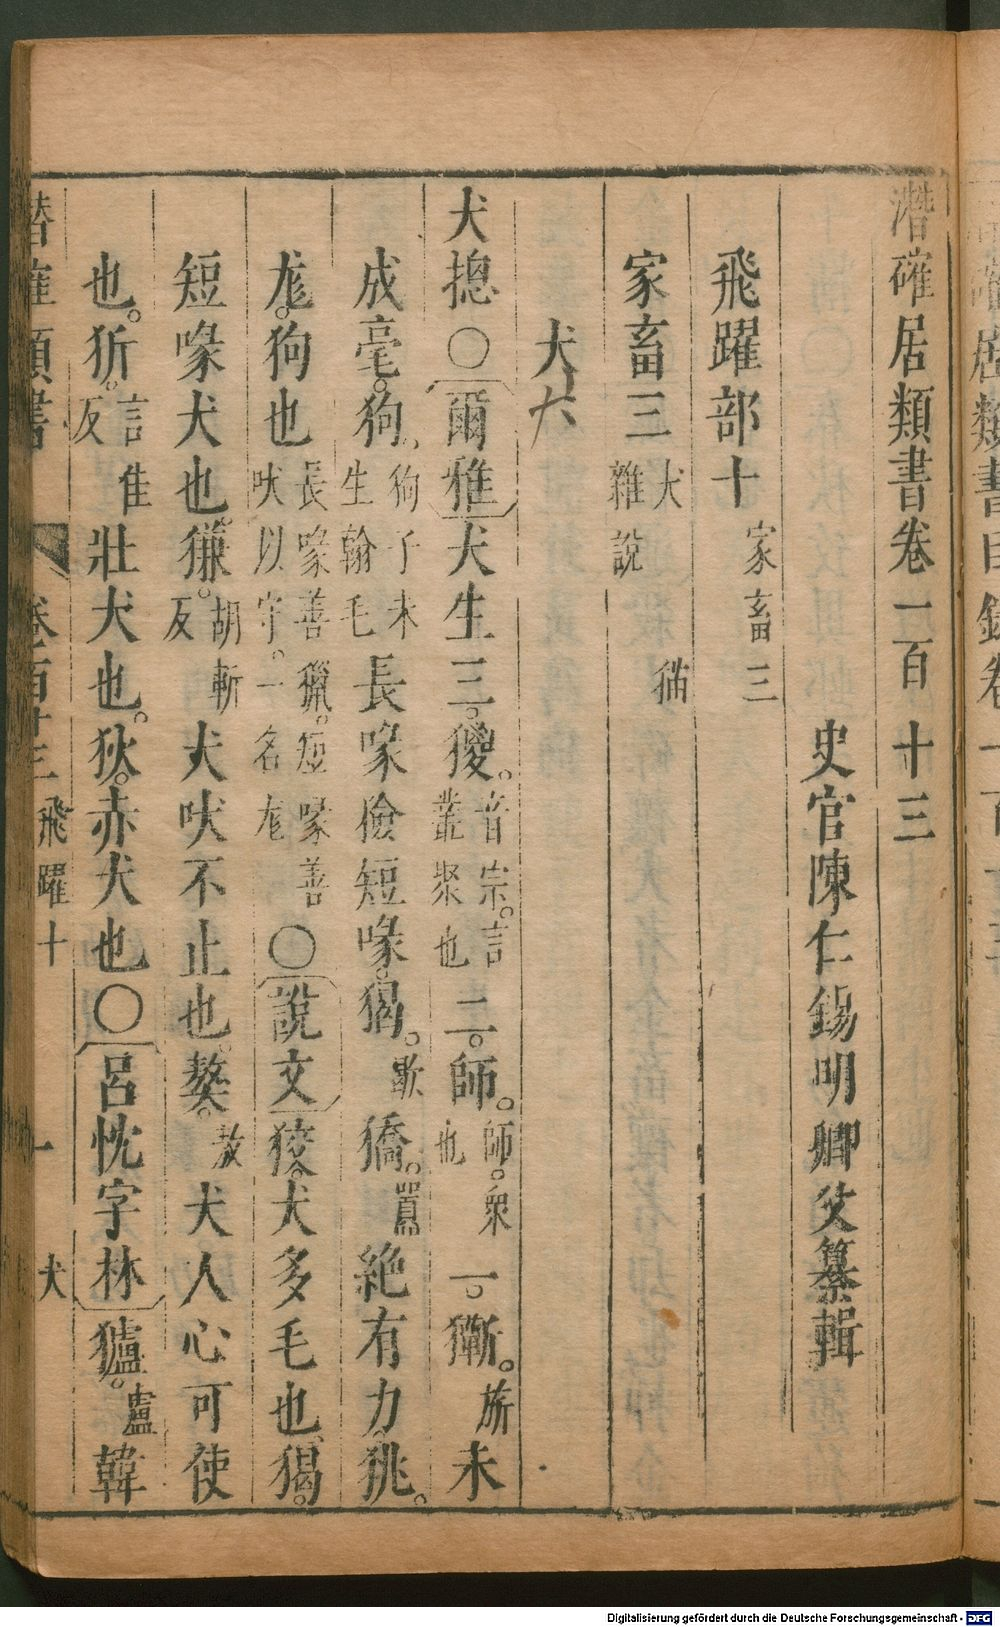 潛確居類書卷一百十三
史官陳仁錫明卿父纂輯
飛躍部十 家畜三
家畜三 犬 猫 雜說
犬六
犬摠〇爾雅犬生三。猣。音宗。言叢聚也二。師。師。衆也一。獑。旂未
成毫。狗。狗子未生翰毛長喙獫短喙猲。歇獢。嚻絕有力狣。
尨。狗也長喙善獵。短喙善吠以守。一名尨〇說文㹶。犬多毛也。猲。
短喙犬也。㺌。胡斬反犬吠不止也。獒。敖犬人心可使
也。狋。言隹反壯犬也。狄。赤犬也〇呂忱字林獹。盧韓
潛確類書 卷百十三 飛躍十 一 犬
Digitalisierung gefördert durch die Deutsche Forschungsgemeinschaft - DFG